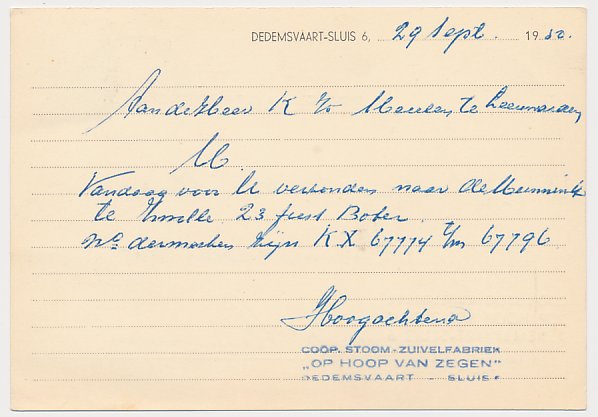 DEDEMSVAART-SLUIS 6, 29 Sept. 1950.
Aan de Heer K v/d Meulen te Leeuwarden
M.
Vandaag voor U verzonden naar
te Zwolle 23 fust Boter.
No dermerken zijn KX 67774 t/m 67796
Hoogachtend
COÖP. STOOM-ZUIVELFABRIEK
„OP HOOP VAN ZEGEN"
DEDEMSVAART - SLUIS 6